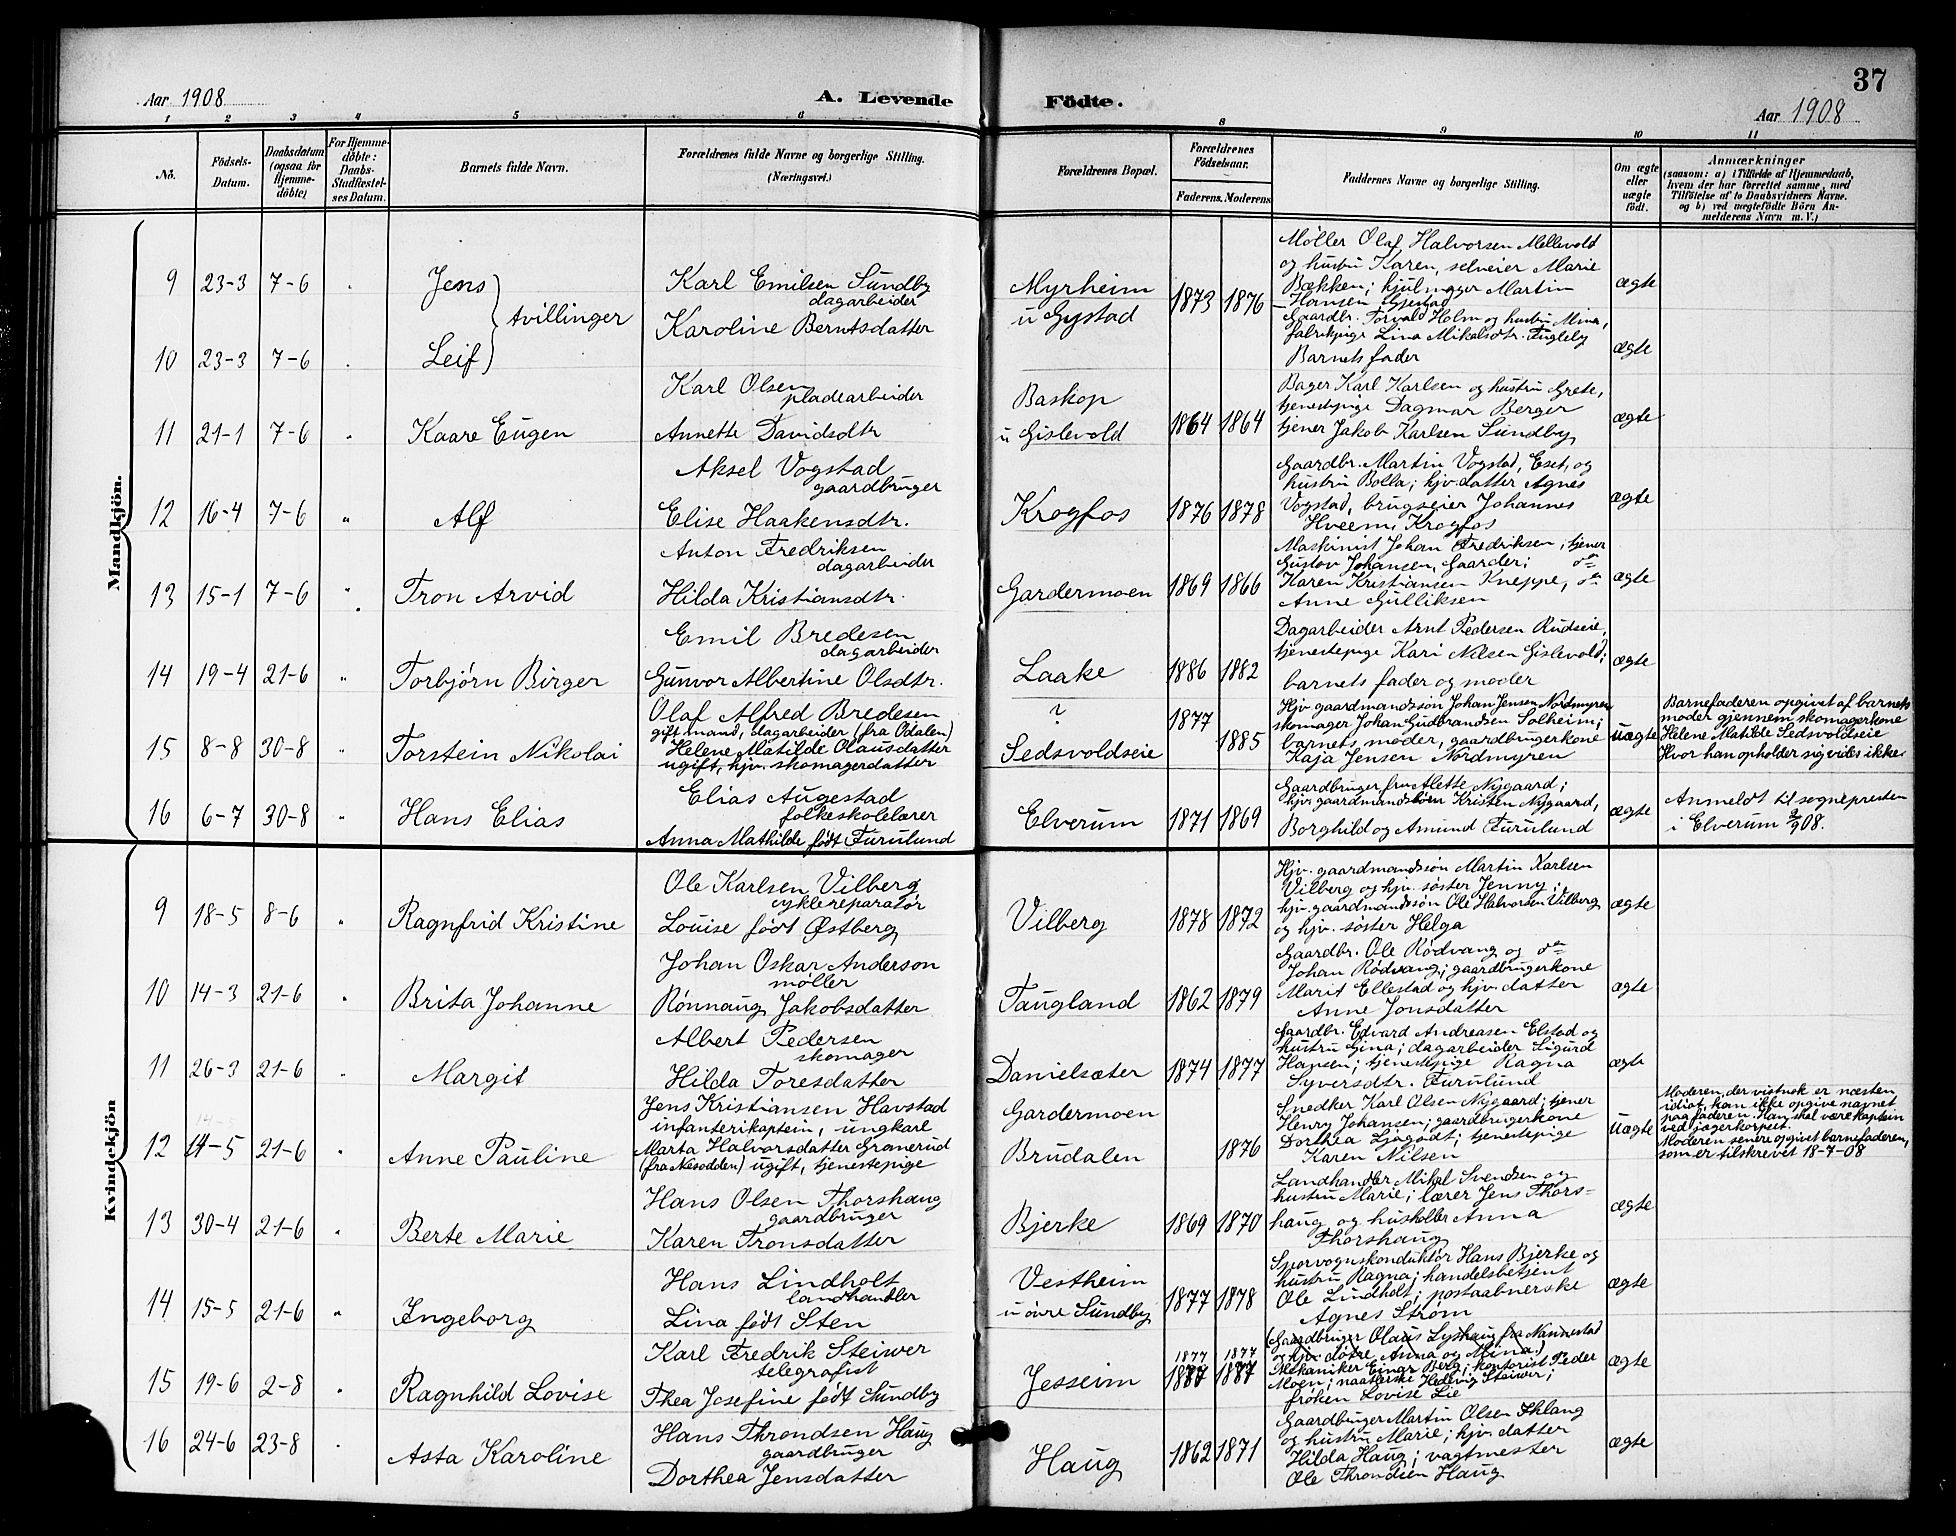 37
Aar 1908
A. Levende
Födte.
Aar 1908
1 2 3 4 5 6 8 9 10 11
No.
Födsels-
Datum.
Daabsdatum
(ogsaa for
Hjemme-
döbte)
For Hjemme-
döbte:
Daabs-
Stadfæstel-
ses Datum.
Barnets fulde Navn.
Forældrenes fulde Navne og borgerlige Stilling.
(Næringsvei.)
Forældrenes Bopæl.
Forældrenes
Födselsaar.
Faderens. Moderens.
Faddernes Navne og borgerlige Stilling.
Om ægte
eller
uægte
født.
Anmærkninger
(saasom: a) i Tilfælde af Hjemmedaab,
hvem der har forrettet samme, med
Tilföielse af to Daabsvidners Navne.
og b) ved uægtefödte Börn An-
melderens Navn m. V.)
Mandkjön.
9 23-3 7-6 " Jens
tvillinger
Karl Emilsen Sundby
dagarbeider
Karoline Berntsdatter
Myrheim
u Gystad
1873 1876
Møller Olaf Halvorsen Mellevold
og hustru Karen, selveier Marie
Bækken; hjulmager Martin
Hansen Gjestad
ægte
10 23-3 7-6 " Leif
Gaardbr. Torvald Holm og hustru Mina,
fabrikpige Lina Mikalsdtr. Fugleby
Barnets fader
ægte
11 21-1 7-6 " Kaare Eugen
Karl Olsen
pladearbeider
Annette Davidsdtr
Baskop
u Gislevold
1864 1864
Bager Karl Karlsen og hustru Grete,
tjenestepige Dagmar Berger
tjener Jakob Karlsen Sundby
ægte
12 16-4 7-6 " Alf
Aksel Vogstad
gaardbruger
Elise Haakensdtr.
Krogfos
1876 1878
Gaardbr. Martin Vogstad, Eset, og
hustru Bolla; hjv. datter Agnes
Vogstad, brugseier Johannes
Hveem, Krogfos
ægte
13 15-1 7-6 " Tron Arvid
Anton Fredriksen
dagarbeider
Hilda Kristiansdtr.
Gardermoen
1869 1866
Maskinist Johan Fredriksen, tjener
Gustov Johansen, Gaarder;
Karen Kristiansen Kneppe,
Anne Gulliksen
ægte
14 19-4 21-6 " Torbjørn Birger
Emil Bredesen
dagarbeider
Gunvor Albertine Olsdtr.
Laake
1886 1882
Dagarbeider Arnt Pedersen Rudseie,
tjenestepige Kari Nilsen Gislevold;
barnets fader og moder
ægte
15 8-8 30-8 " Torstein Nikolai
Olaf Alfred Bredesen
gift mand, dagarbeider (fra Odalen)
Helene Matilde Olausdatter
ugift, hjv. skomagerdatter
?
Sedsvoldseie
1877
1885
Hjv gaardmandssøn Johan Jensen Nordmyren
skomager Johan Gudbrandsen Solheim;
barnets moder, gaardbrugerkone
Kaja Jensen Nordmyren
uægte
Barnefaderen opgivet af barnets
moder gjennem skomagerkone
Helene Matilde Sedsvoldseie
Hvor han opholder sig vides ikke
16 6-7 30-8 " Hans Elias
Elias Augestad
folkeskolelærer
Anna Mathilde født Furulund
Elverum
1871 1869
Gaardbruger fru Alette Nygaard;
hjv. gaardmandssøn Kristen Nygaard,
Borghild og Amund Furulund
ægte
Anmeldt til sognepresten
i Elverum 08.
Kvindekjön
9 18-5 8-6 " Ragnfrid Kristine
Ole Karlsen Vilberg
cyklereparatør
Louise født Østberg
Vilberg
1878 1872
Hjv. gaardmandssøn Martin Karlsen
Vilberg og hjv. søster Jenny;
hjv. gaardmandssøn Ole Halvorsen Vilberg
og hjv. søster Helga
ægte
10 14-3 21-6 " Brita Johanne
Johan Oskar Anderson
møller
Rønnaug Jakobsdatter
Taugland
1862 1879
Gaardbr. Ole Rødvang og
Johan Rødvang; gaardbrugerkone
Marit Ellestad og hjv. datter
Anne Jonsdatter
ægte
11 26-3 21-6 " Margit
Albert Pedersen
skomager
Hilda Toresdatter
Danielsæter
1874 1877
Gaardbr. Edvard Andreasen Elstad og
hustru Gina; dagarbeider Sigurd
Hansen; tjenestepige Ragna
Syversdtr. Furulund
ægte
14-5
12 14-5 21-6 " Anne Pauline
Jens Kristiansen Havstad
infanterikaptein, ungkarl
Marta Halvorsdatter Granerud
(fra Nesodden) ugift, tjenestepige
Gardermoen
Brudalen
1876
Snedker Karl Olsen Nygaard; tjener
Henry Johansen; gaardbrugerkone
Dorthea Ljøgodt; tjenestepige
Karen Nilsen
uægte
Moderen, der vistnok er næsten
idiot, kan ikke opgive navnet
paa faderen. Han skal være kaptein
ved jægerkorpset.
Moderen senere opgivet barnefaderen,
som er tilskrevet 18-7-08
13 30-4 21-6 " Berte Marie
Hans Olsen Thorshaug
gaardbruger
Karen Tronsdatter
Bjerke
1869 1870
Landhandler Mikal Svendsen og
hustru Marie; lærer Jens Thors-
haug og husholder. Anna
Thorshaug
ægte
14 15-5 21-6 " Ingeborg
Hans Lindholt
landhandler
Lina født Sten
Vestheim
u øvre Sundby
1877 1878
Sporvognskonduktør Hans Bjerke og
hustru Ragna; handelsbetjent
Ole Lindholt; postaabnerske
Agnes Strøm
ægte
15 19-6 2-8 " Ragnhild Lovise
Karl Fredrik Steiwer
telegrafist
Thea Josefine født Sundby
Jesseim
1877 1877
1887 1887
(Gaardbruger Olaus Lyshaug fra Nannestad
og hjv. døtre Anna og Mina.)
Mekaniker Einar Berg; kontorist Peder
Moen; Hedvig Steiwer;
frøken Lovise Lie
ægte
16 24-6 23-8 " Asta Karoline
Hans Throndsen Haug
gaardbruger
Dorthea Jensdatter
Haug
1862 1871
Gaardbruger Martin Olsen Ihlang
og hustru Marie; hjv. datter
Hilda Haug; vagtmester
Ole Throndsen Haug
ægte